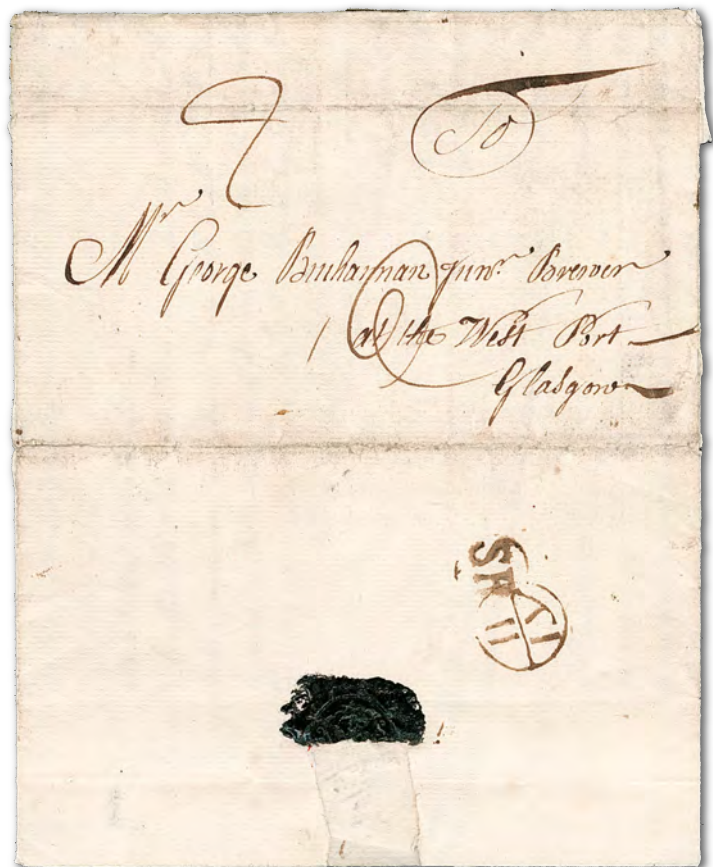 To
Mr George Buchannan Junr. Brewer
at the West Port
Glasgow